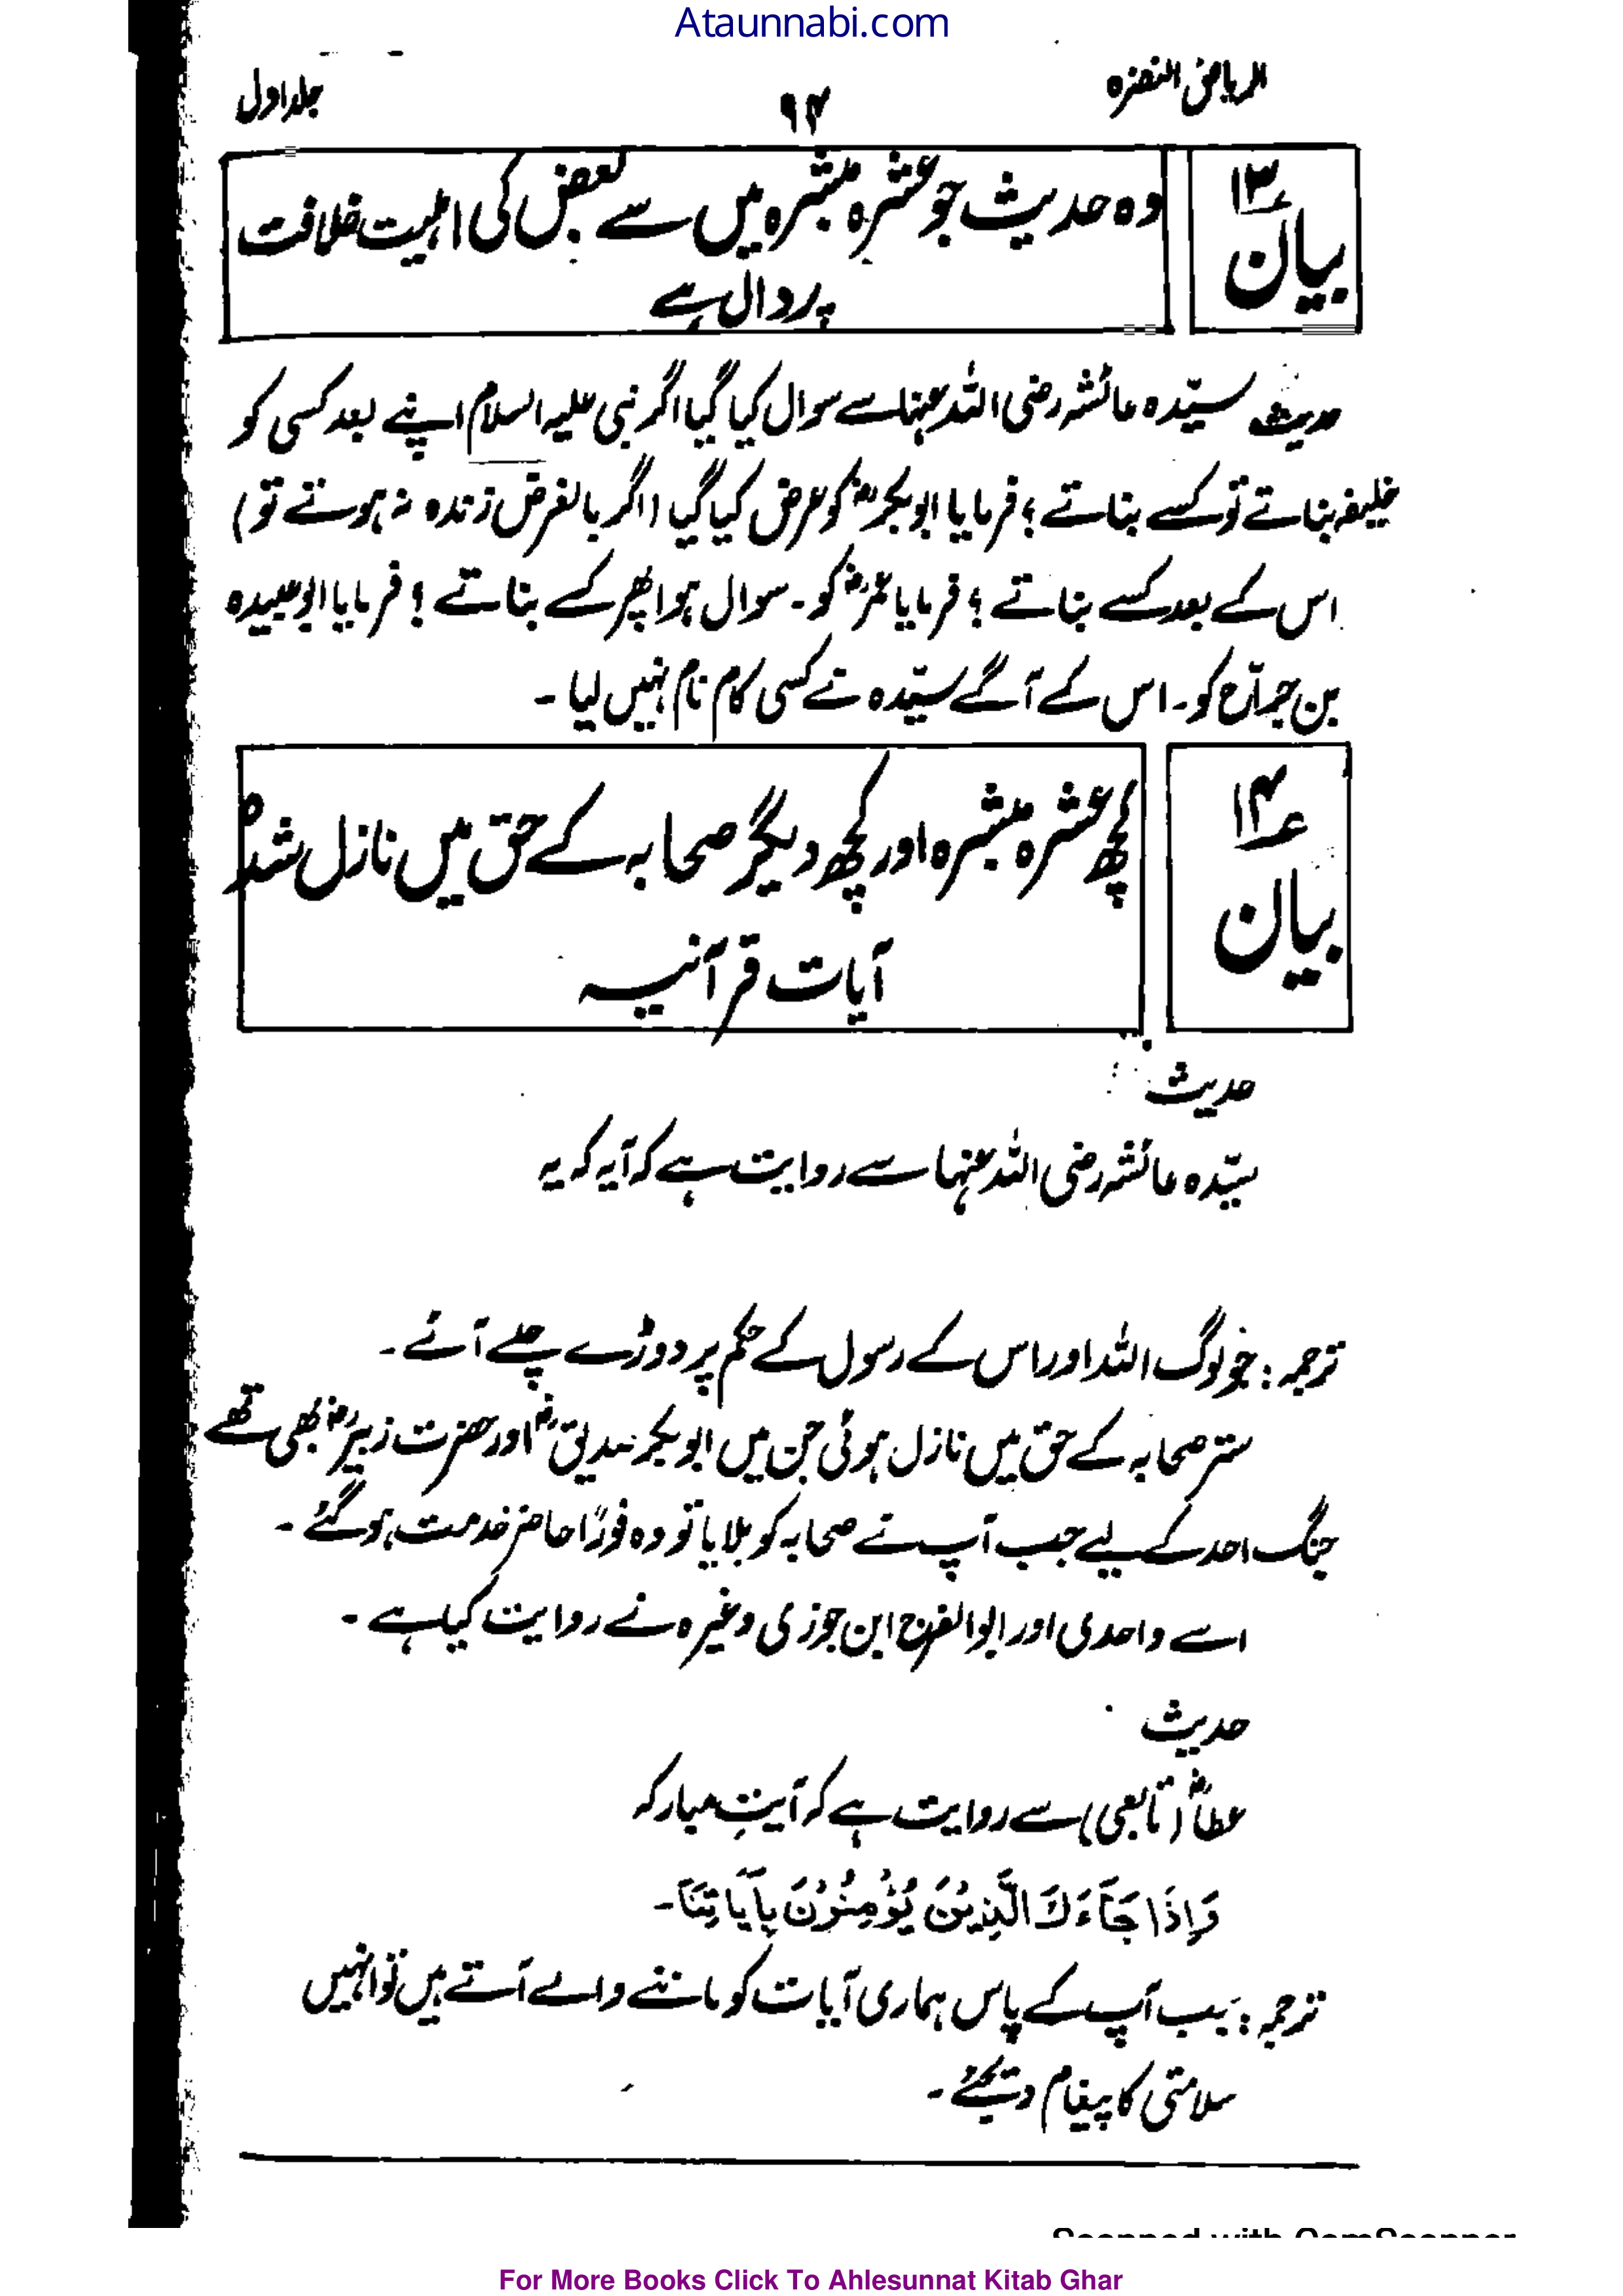 Ataunnabi.com
الریاض النضرہ
۹۴
جلد اول
بیان ۱۳؎
وہ حدیث جو عشرہ مبشرہ میں سے بعض کی اہلیت خلافت
پر دال ہے
حدیث سیّدہ عائشہ رضی اللہ عنہا سے سوال کیا گیا اگر نبی علیہ السلام اپنے بعد کسی کو
خلیفہ بناتے تو کسے بناتے ؟ فرمایا ابو بکرؓ کو عرض کیا گیا (اگر بالفرض زندہ نہ ہوتے تو)
اس کے بعد کسے بناتے ؟ فرمایا عمرؓ کو ۔ سوال ہوا پھر کسے بناتے ؟ فرمایا ابو عبیدہ
بن جراح کو ۔ اس کے آگے سیّدہ نے کسی کام نام نہیں لیا ۔
بیان ۱۴؎
کچھ عشرہ مبشرہ اور کچھ دیگر صحابہ کے حق میں نازل شدہ
آیات قرآنیہ
حدیث
سیّدہ عائشہ رضی اللہ عنہا سے روایت ہے کہ آیہ کہ یہ
ترجمہ : جو لوگ اللہ اور اس کے رسول کے حکم پر دوڑے چلے آئے ۔
ستر صحابہ کے حق میں نازل ہوئی جن میں ابو بکر صدیقؓ اور حضرت زبیرؓ بھی تھے
جنگ احد کے لیے جب آپ نے صحابہ کو بلایا تو وہ فورًا حاضر خدمت ہو گئے ۔
اسے واحدی اور ابو الفرج ابن جوزی وغیرہ نے روایت کیا ہے ۔
حدیث
عطاؒ (تابعی) سے روایت ہے کہ آیتِ مبارکہ
وَاِذَا جَآءَكَ الَّذِيْنَ يُؤْمِنُوْنَ بِاٰيَاتِنَا ۔
ترجمہ : جب آپ کے پاس ہماری آیات کو ماننے والے آتے ہیں تو انہیں
سلامتی کا پیغام دیجئے ۔
Scanned with CamScanner
For More Books Click To Ahlesunnat Kitab Ghar